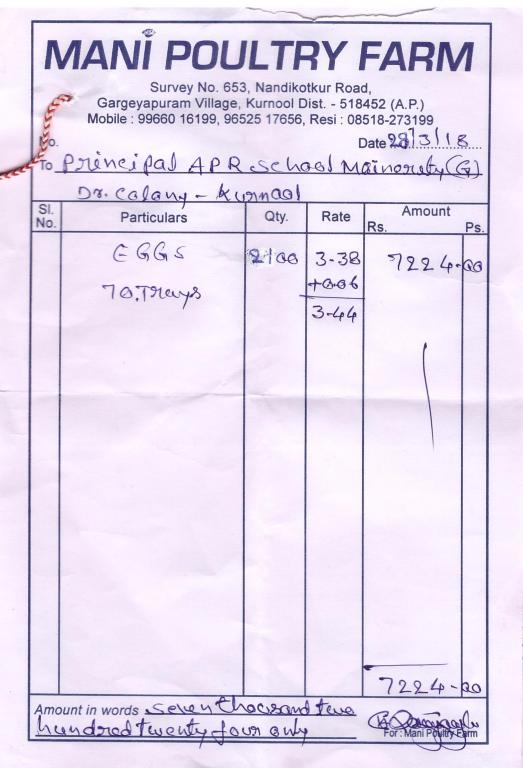 MANI POULTRY FARM
Survey No. 653, Nandikotkur Road,
Gargeyapuram Village, Kurnool Dist. - 518452 (A.P.)
Mobile : 99660 16199, 96525 17656, Resi : 08518-273199
No. Date 28/3/18
To Principal A P R School Mainorety (G)
Dr. Colany - Kurnool
Sl. No. Particulars Qty. Rate Amount Rs. Ps.
EGGS 2100 3-38 7224-00
70.Trays +0.06
3-44
7224-00
Amount in words Seven thousand two
hundred twenty four only
For : Mani Poultry Farm